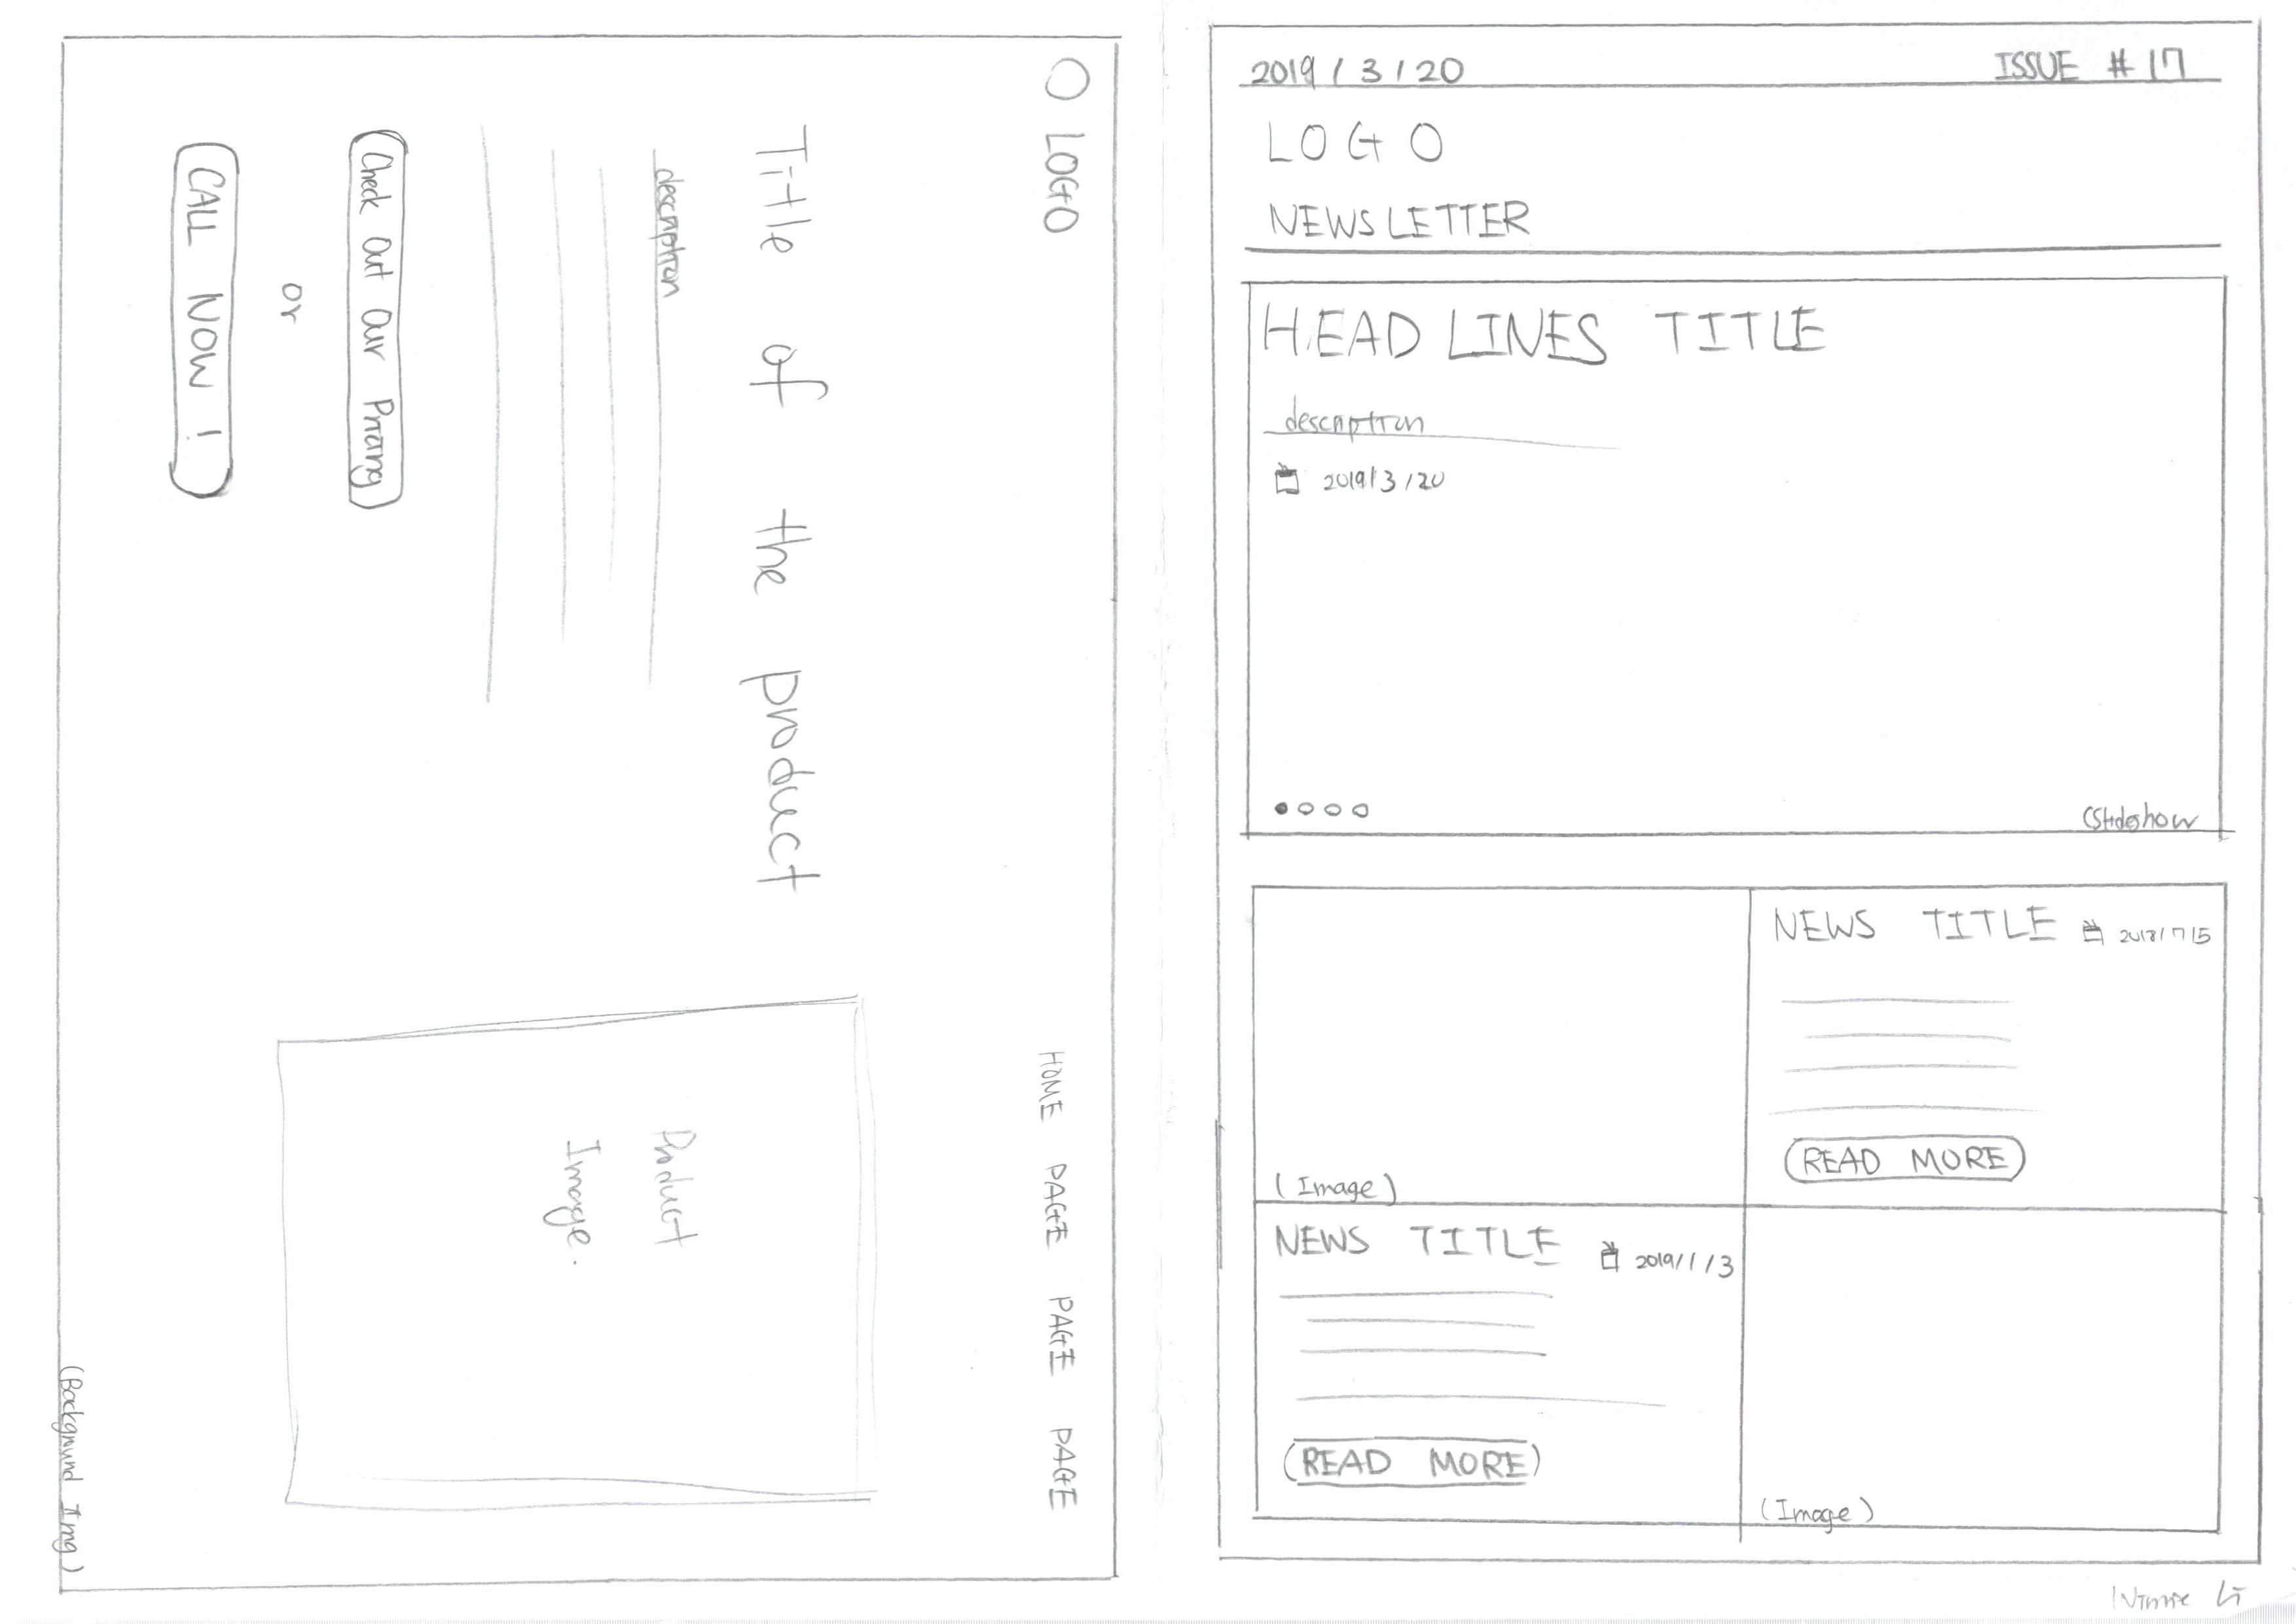 LOGO
HOME PAGE PAGE PAGE
Title of the product
description
Product
Image.
Check Out Our Pricing
or
CALL NOW !
(Background Img)
2019 / 3 / 20 ISSUE # 17
LOGO
NEWSLETTER
HEADLINES TITLE
description
2019/3/20
(Slideshow
(Image)
NEWS TITLE 2018/7/5
READ MORE
NEWS TITLE 2019/1/3
READ MORE
(Image)
Winnie Li